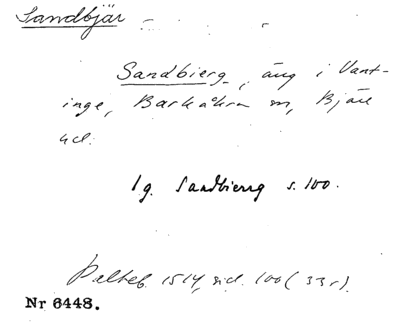 Sandbjär
Sandbierg, äng i Vant-
inge, Barkåkra sn, Bjäre
hd.
1 g. Sandbierg s. 100.
Palteb. 1514, sid. 100 (33 r).
Nr 6448.